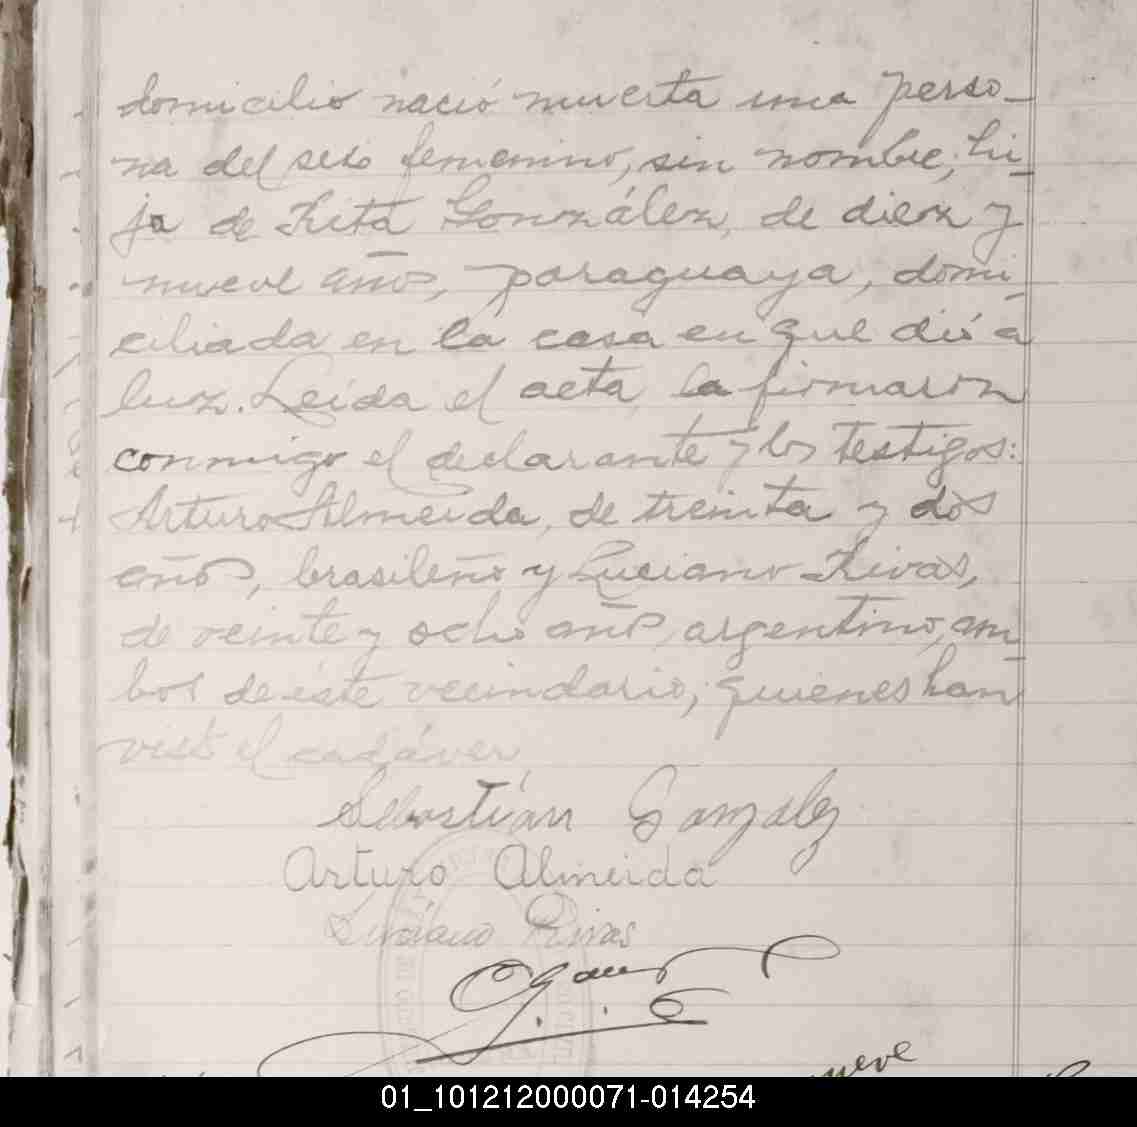 domicilio nació muerta una perso-
na del sexo femenino, sin nombre, hi-
ja de Rita González, de diez y
nueve años, paraguaya, domi-
ciliada en la casa en que dió a
luz. Leída el acta, la firmaron
conmigo el declarante y los testigos:
Arturo Almeida, de treinta y dos
años, brasileño y Luciano Rivas,
de veinte y ocho años, argentino, am-
bos de éste vecindario, quienes han
visto el cadáver
Sebastián Gonzalez
Arturo Almeida
Luciano Rivas
nueve
01_101212000071-014254